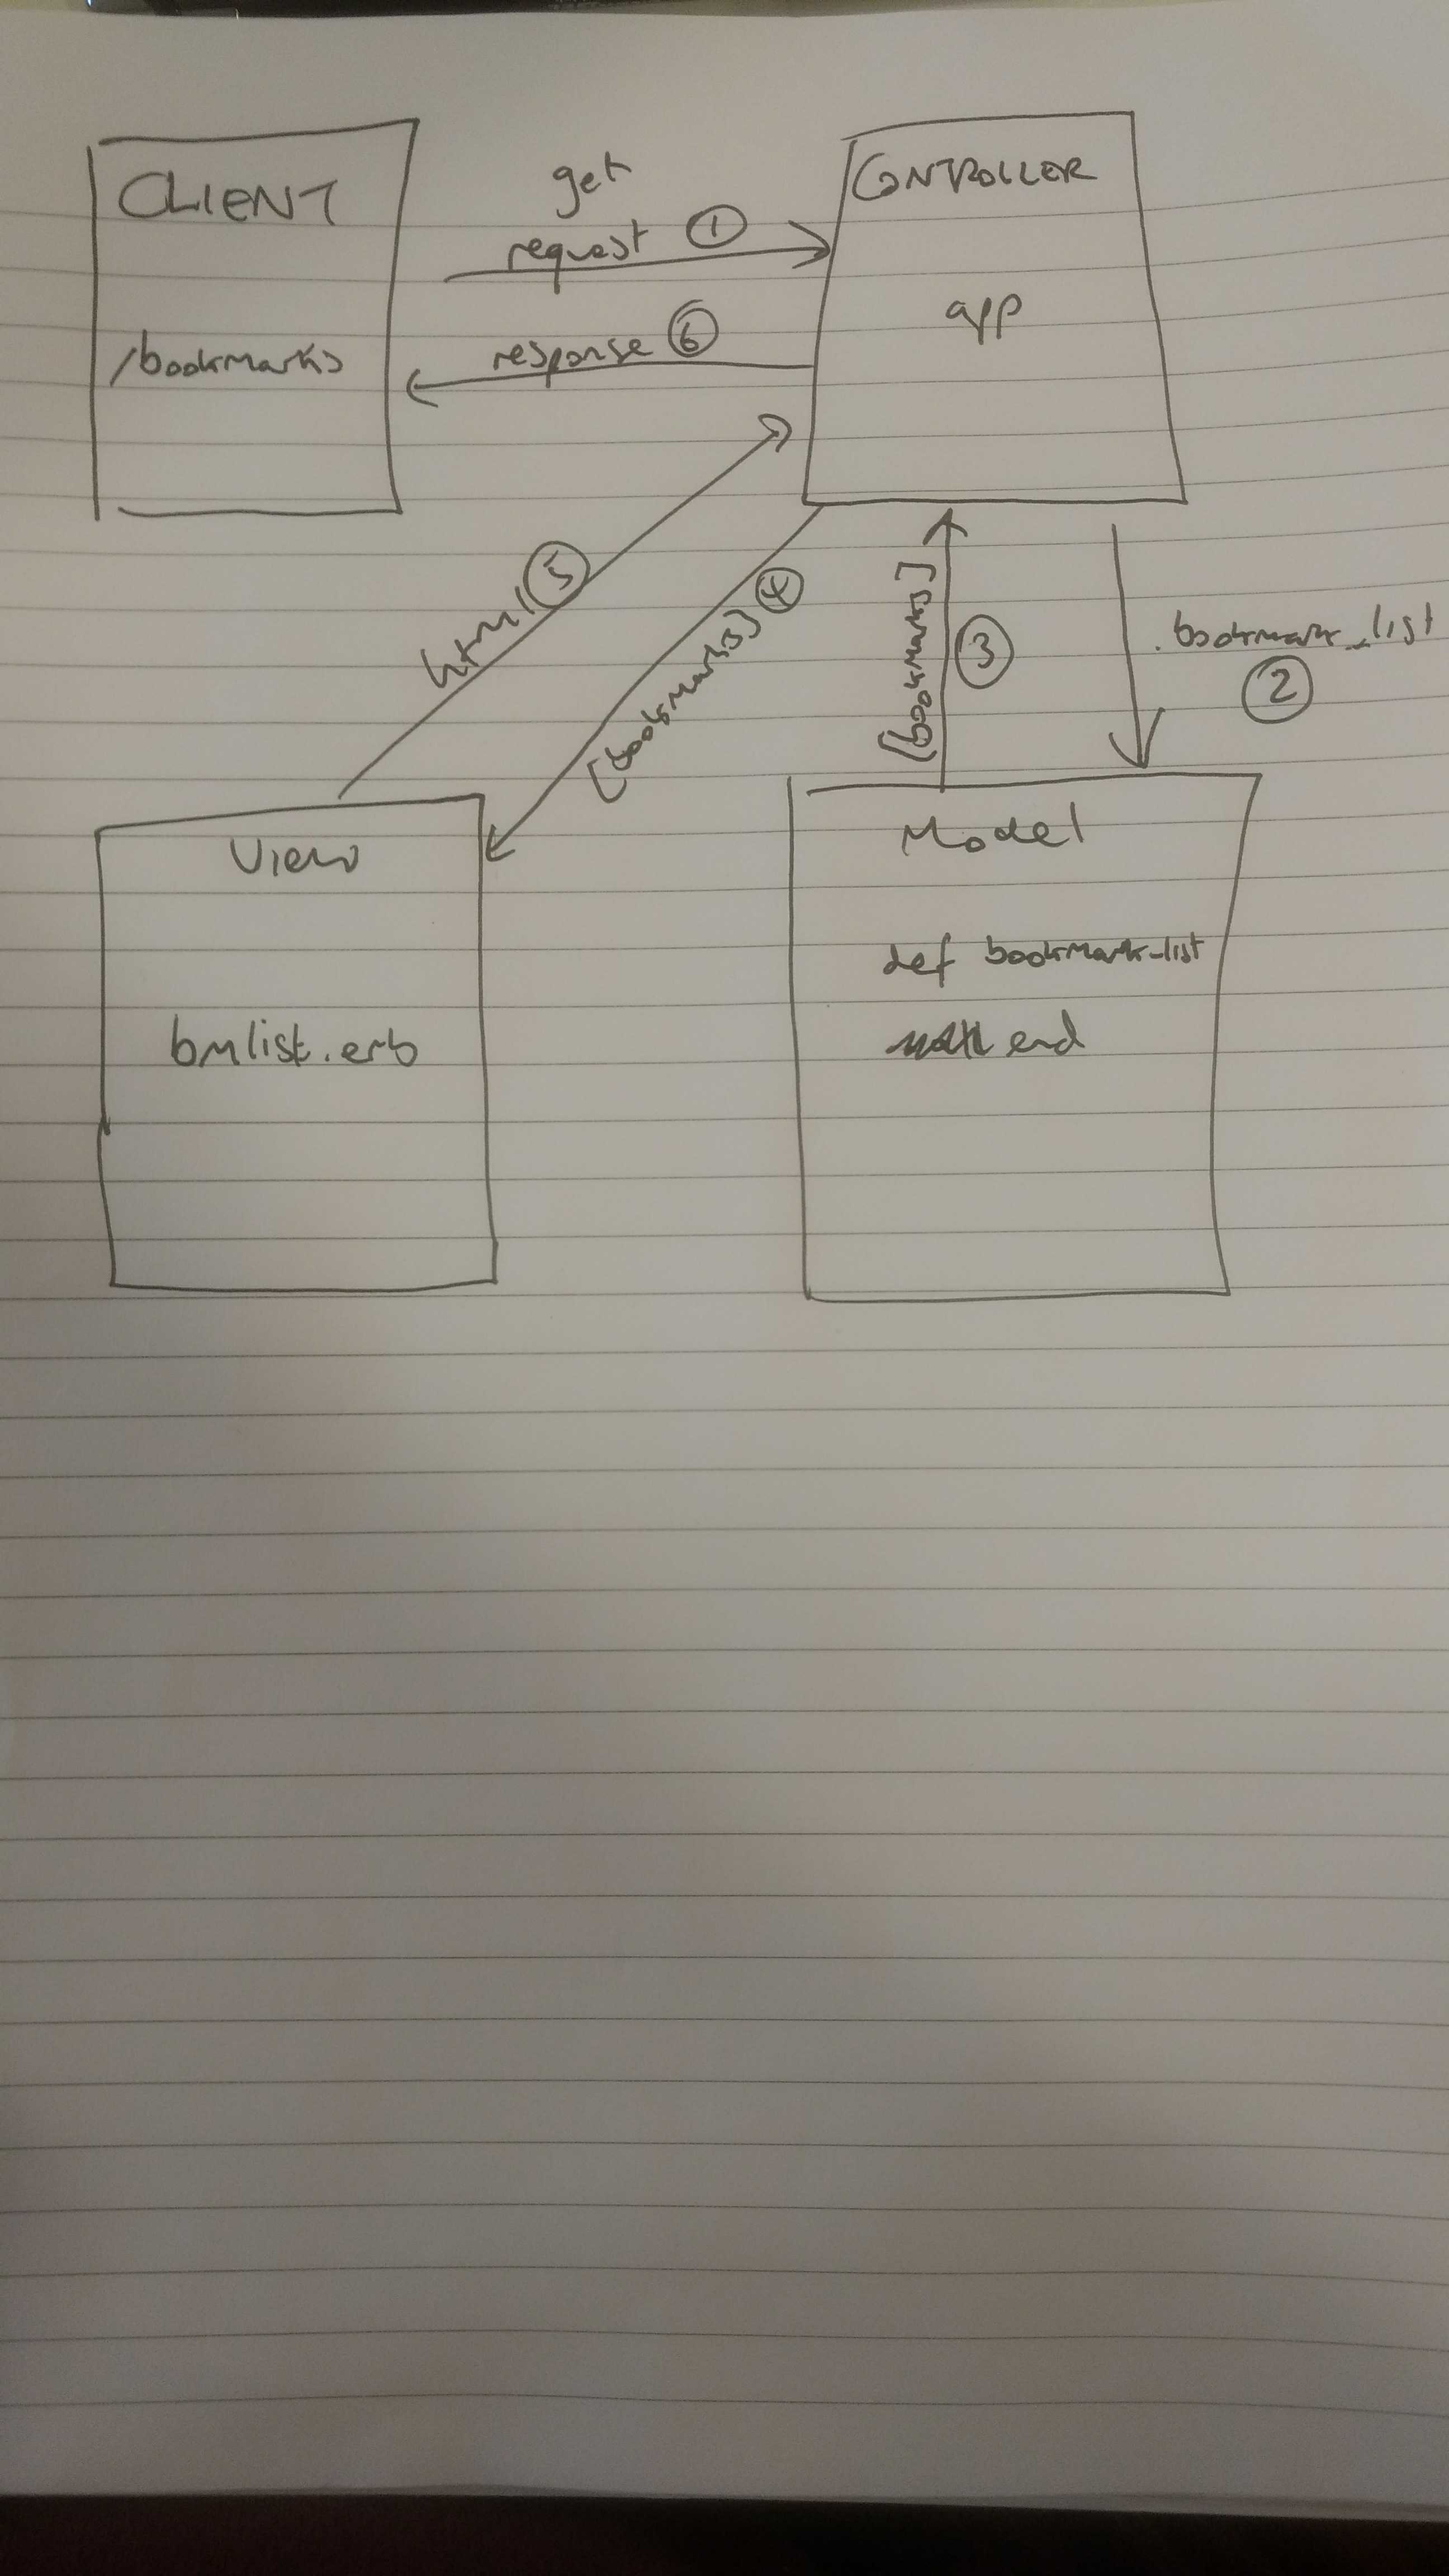 CLIENT
/bookmarks
get
request ①
response ⑥
CONTROLLER
app
html ⑤
[bookmarks] ④
[bookmarks]
③
.bookmark_list
②
View
bmlist.erb
Model
def bookmark-list
end